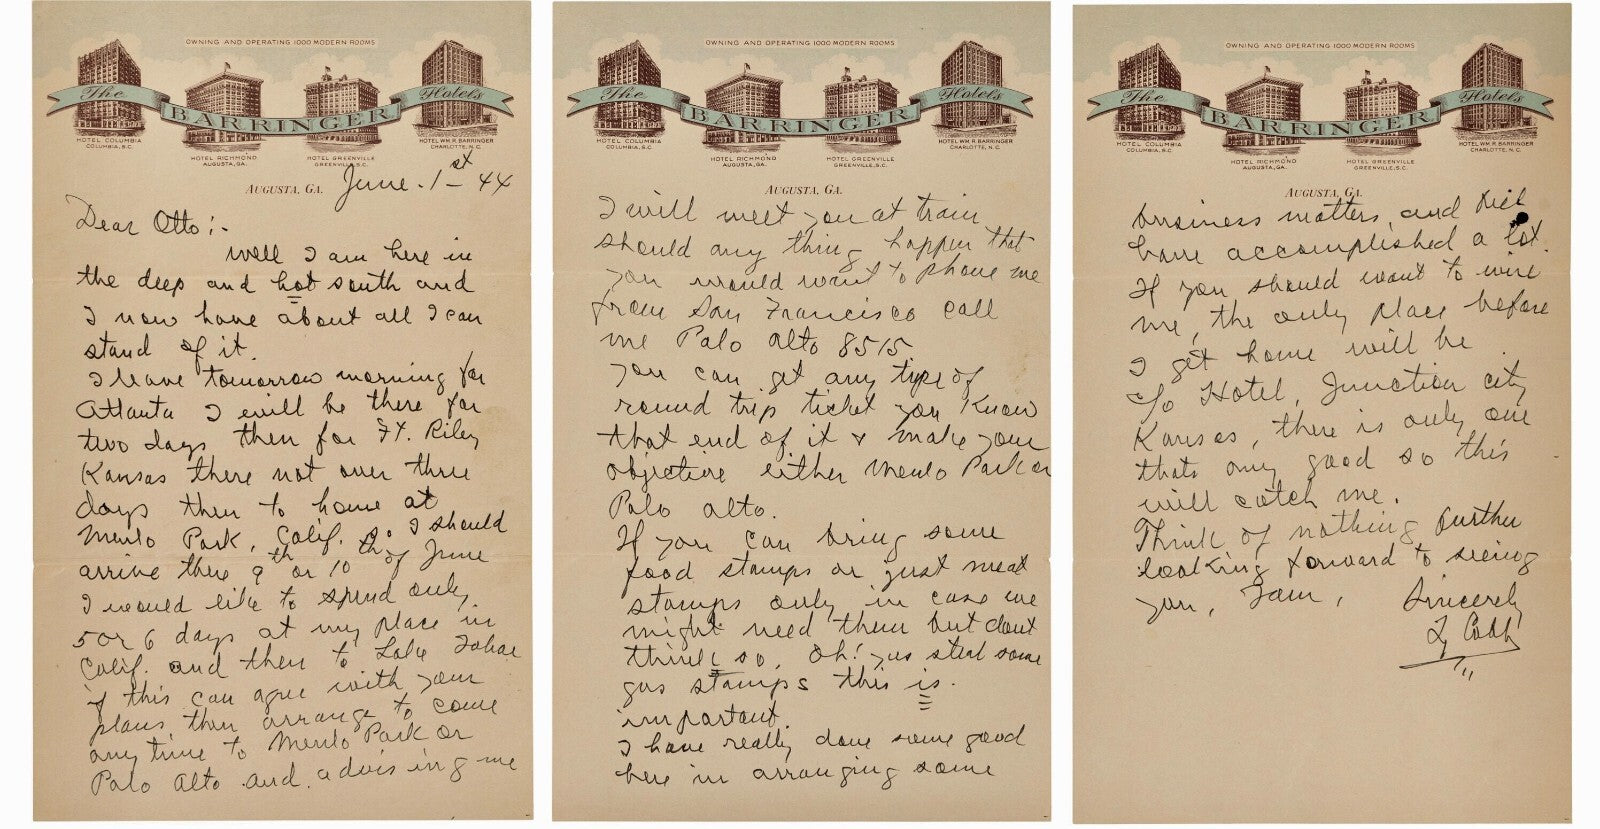 OWNING AND OPERATING 1000 MODERN ROOMS
The BARRINGER Hotels
HOTEL COLUMBIA
COLUMBIA, S.C.
HOTEL RICHMOND
AUGUSTA, GA.
HOTEL GREENVILLE
GREENVILLE, S.C.
HOTEL WM. R. BARRINGER
CHARLOTTE, N.C.
AUGUSTA, GA. June. 1st 44
Dear Otto:-
Well I am here in
the deep and hot south and
I now have about all I can
stand of it.
I leave tomorrow morning for
Atlanta I will be there for
two days then for Ft. Riley
Kansas there not over three
days then to home at
Menlo Park, Calif. so I should
arrive there 9th or 10th of June
I would like to spend only
5 or 6 days at my place in
Calif. and then to Lake Tahoe
if this can agree with your
plans then arrange to come
any time to Menlo Park or
Palo Alto and advising me
OWNING AND OPERATING 1000 MODERN ROOMS
The BARRINGER Hotels
HOTEL COLUMBIA
COLUMBIA, S.C.
HOTEL RICHMOND
AUGUSTA, GA.
HOTEL GREENVILLE
GREENVILLE, S.C.
HOTEL WM. R. BARRINGER
CHARLOTTE, N.C.
AUGUSTA, GA.
I will meet you at train
should any thing happen that
you would want to phone me
from San Francisco call
me Palo Alto 8515
you can get any type of
round trip ticket you know
that end of it & make your
objective either Menlo Park or
Palo Alto.
If you can bring some
food stamps or just meat
stamps only in case we
might need them but dont
think so, Oh! yes steal some
gas stamps this is
important.
I have really done some good
here in arranging some
OWNING AND OPERATING 1000 MODERN ROOMS
The BARRINGER Hotels
HOTEL COLUMBIA
COLUMBIA, S.C.
HOTEL RICHMOND
AUGUSTA, GA.
HOTEL GREENVILLE
GREENVILLE, S.C.
HOTEL WM. R. BARRINGER
CHARLOTTE, N.C.
AUGUSTA, GA.
business matters, and
have accomplished a lot.
If you should want to wire
me, the only place before
I get home will be
c/o Hotel, Junction city
Kansas, there is only one
thats any good so this
will catch me.
Think of nothing further
looking forward to seeing
you, I am, Sincerely
Ty Cobb